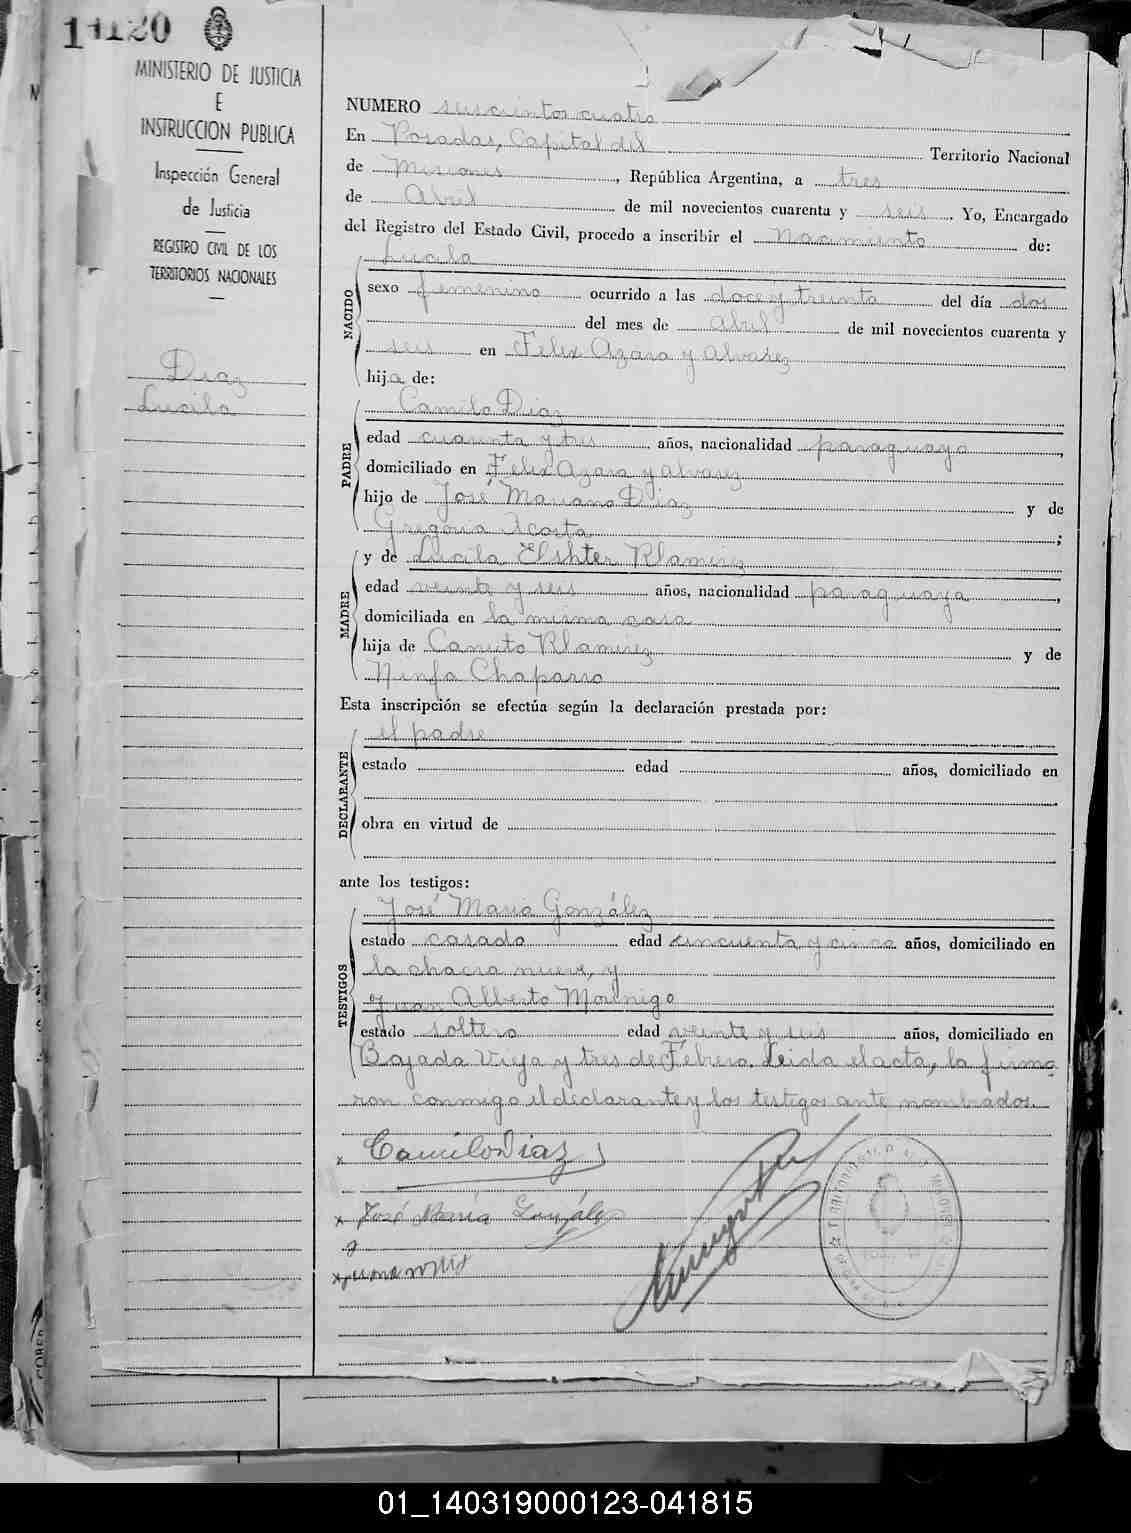 MINISTERIO DE JUSTICIA
E
INSTRUCCION PUBLICA
Inspección General
de Justicia
REGISTRO CIVIL DE LOS
TERRITORIOS NACIONALES
Diaz
Lucila
NUMERO seiscientos cuatro
En Posadas, Capital del Territorio Nacional
de Misiones, República Argentina, a tres
de Abril de mil novecientos cuarenta y seis. Yo, Encargado
del Registro del Estado Civil, procedo a inscribir el Nacimiento de:
NACIDO
Lucila
sexo femenino ocurrido a las doce y treinta del día dos
del mes de abril de mil novecientos cuarenta y
seis en Felix Azara y Alvarez
hija de:
PADRE
Camilo Diaz
edad cuarenta y tres años, nacionalidad paraguaya,
domiciliado en Felix Azara y Alvarez
hijo de José Mariano Diaz y de
Gregoria Acosta;
MADRE
y de Lucila Elshter Rlamirez
edad veinte y seis años, nacionalidad paraguaya,
domiciliada en la misma casa
hija de Canuto Rlamirez y de
Ninfa Chaparro
Esta inscripción se efectúa según la declaración prestada por:
DECLARANTE
el padre
estado edad años, domiciliado en
obra en virtud de
ante los testigos:
TESTIGOS
José Maria González
estado casado edad cincuenta y cinco años, domiciliado en
la chacra nueve, y
Juan Alberto Morinigo
estado soltero edad veinte y seis años, domiciliado en
Bajada Vieja y tres de Febrero. Leida el acta, la firma
ron conmigo el declarante y los testigos ante nombrados.
Camilo Diaz
José María González
01_140319000123-041815